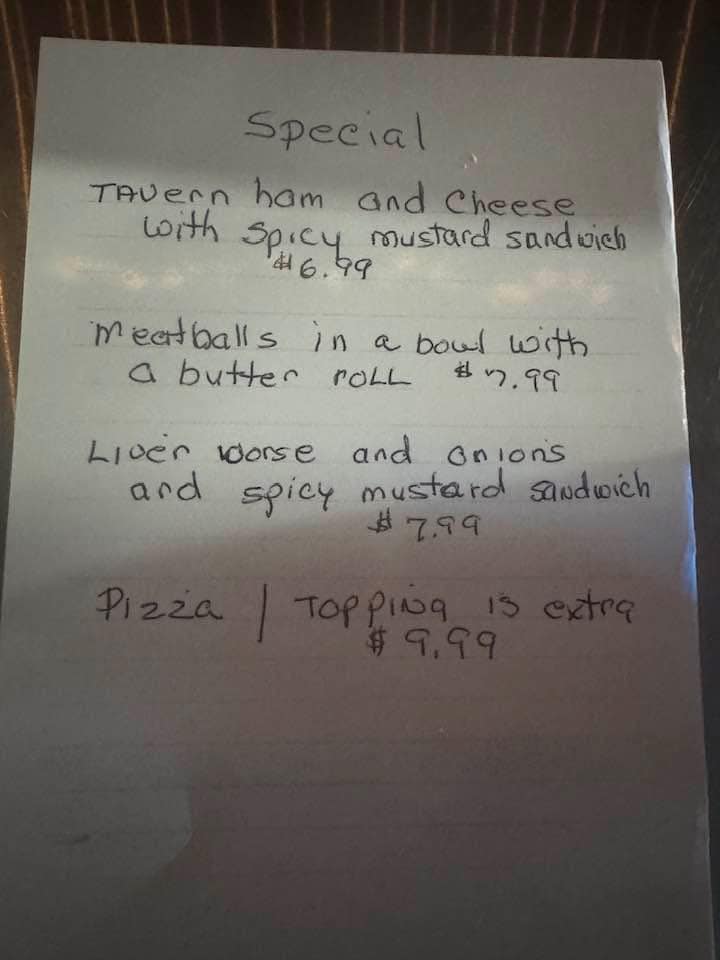 Special
TAVern ham and Cheese
with spicy mustard sandwich
$6.99
Meatballs in a bowl with
a butter ROLL $7.99
LIVER worse and onions
and spicy mustard sandwich
$7.99
Pizza | TOPPING is extra
$9.99